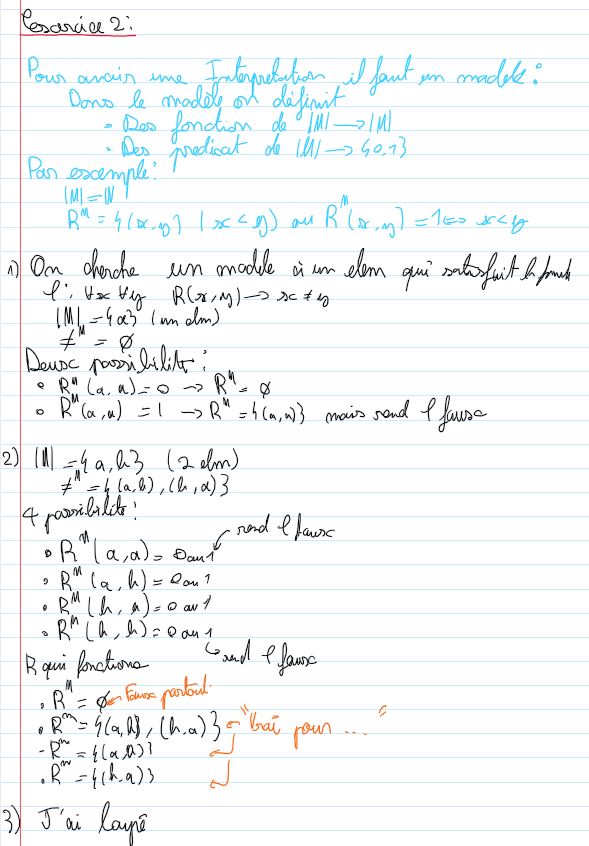 Exercice 2:
Pour avoir une Interprétation il faut un modèle:
Dans le modèle on définit
• Des fonction de |M| → |M|
• Des predicat de |M| → {0,1}
Par exemple:
|M| = ℕ
R^M = {(x,y) | x < y} ou R^M(x,y) = 1 ⟺ x < y
1) On cherche un modèle à un elem qui satisfait la formule
φ: ∀x ∀y R(x,y) → x ≠ y
|M| = {a} (un elm)
≠^M = ∅
Deux possibilité:
• R^M(a,a) = 0 → R^M = ∅
• R^M(a,a) = 1 → R^M = {(a,a)} mais rend φ fausse
2) |M| = {a,b} (2 elm)
≠^M = {(a,b), (b,a)}
4 possibilité:
rend φ fausse
• R^M(a,a) = 0 ou 1
• R^M(a,b) = 0 ou 1
• R^M(b,a) = 0 ou 1
• R^M(b,b) = 0 ou 1
rend φ fausse
R qui fonctionne
• R^M = ∅ ← Fausse partout.
• R^M = {(a,b), (b,a)} "Vrai pour ...."
- R^M = {(a,b)}
• R^M = {(b,a)}
3) J'ai loupé